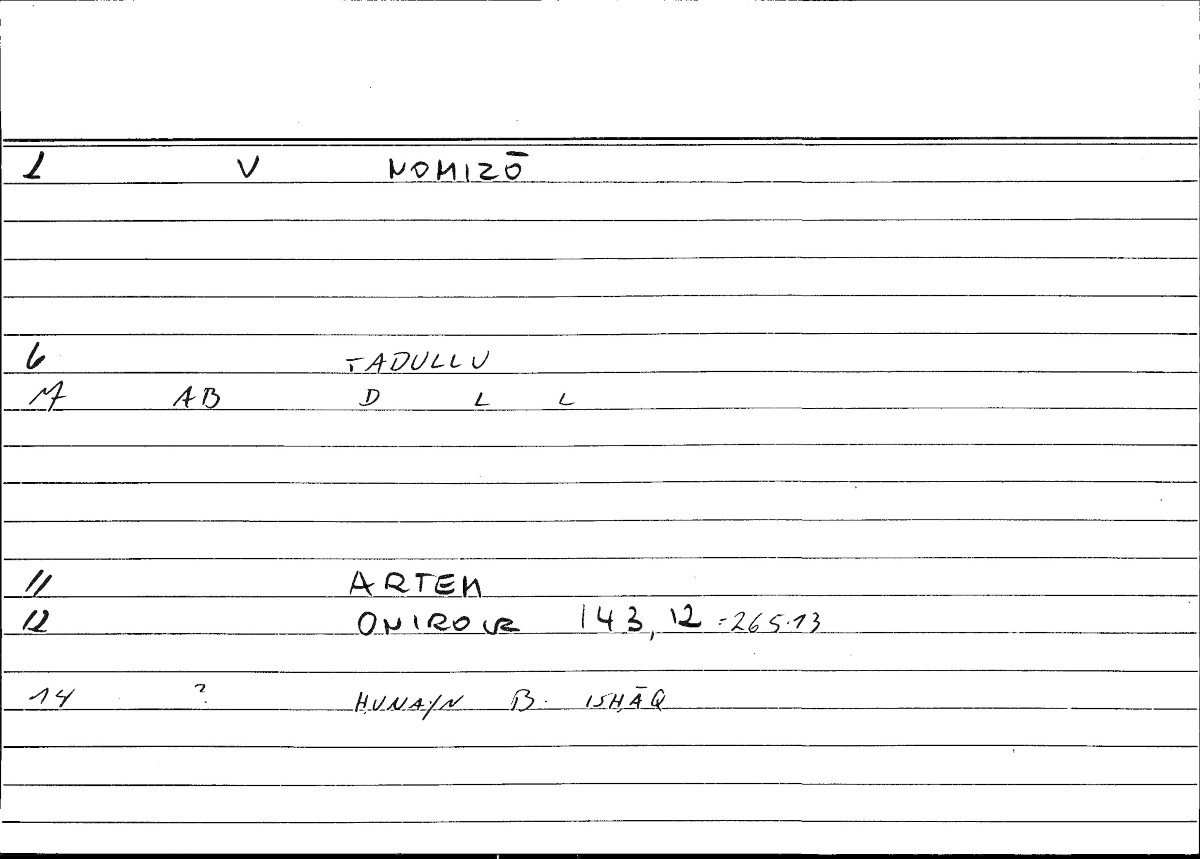 1 V NOMIZŌ
6 TADULLU
7 AB D L L
11 ARTEM
12 ONIROCR 143,12 =265.13
14 ? ḤUNAYN B. ISḤĀQ